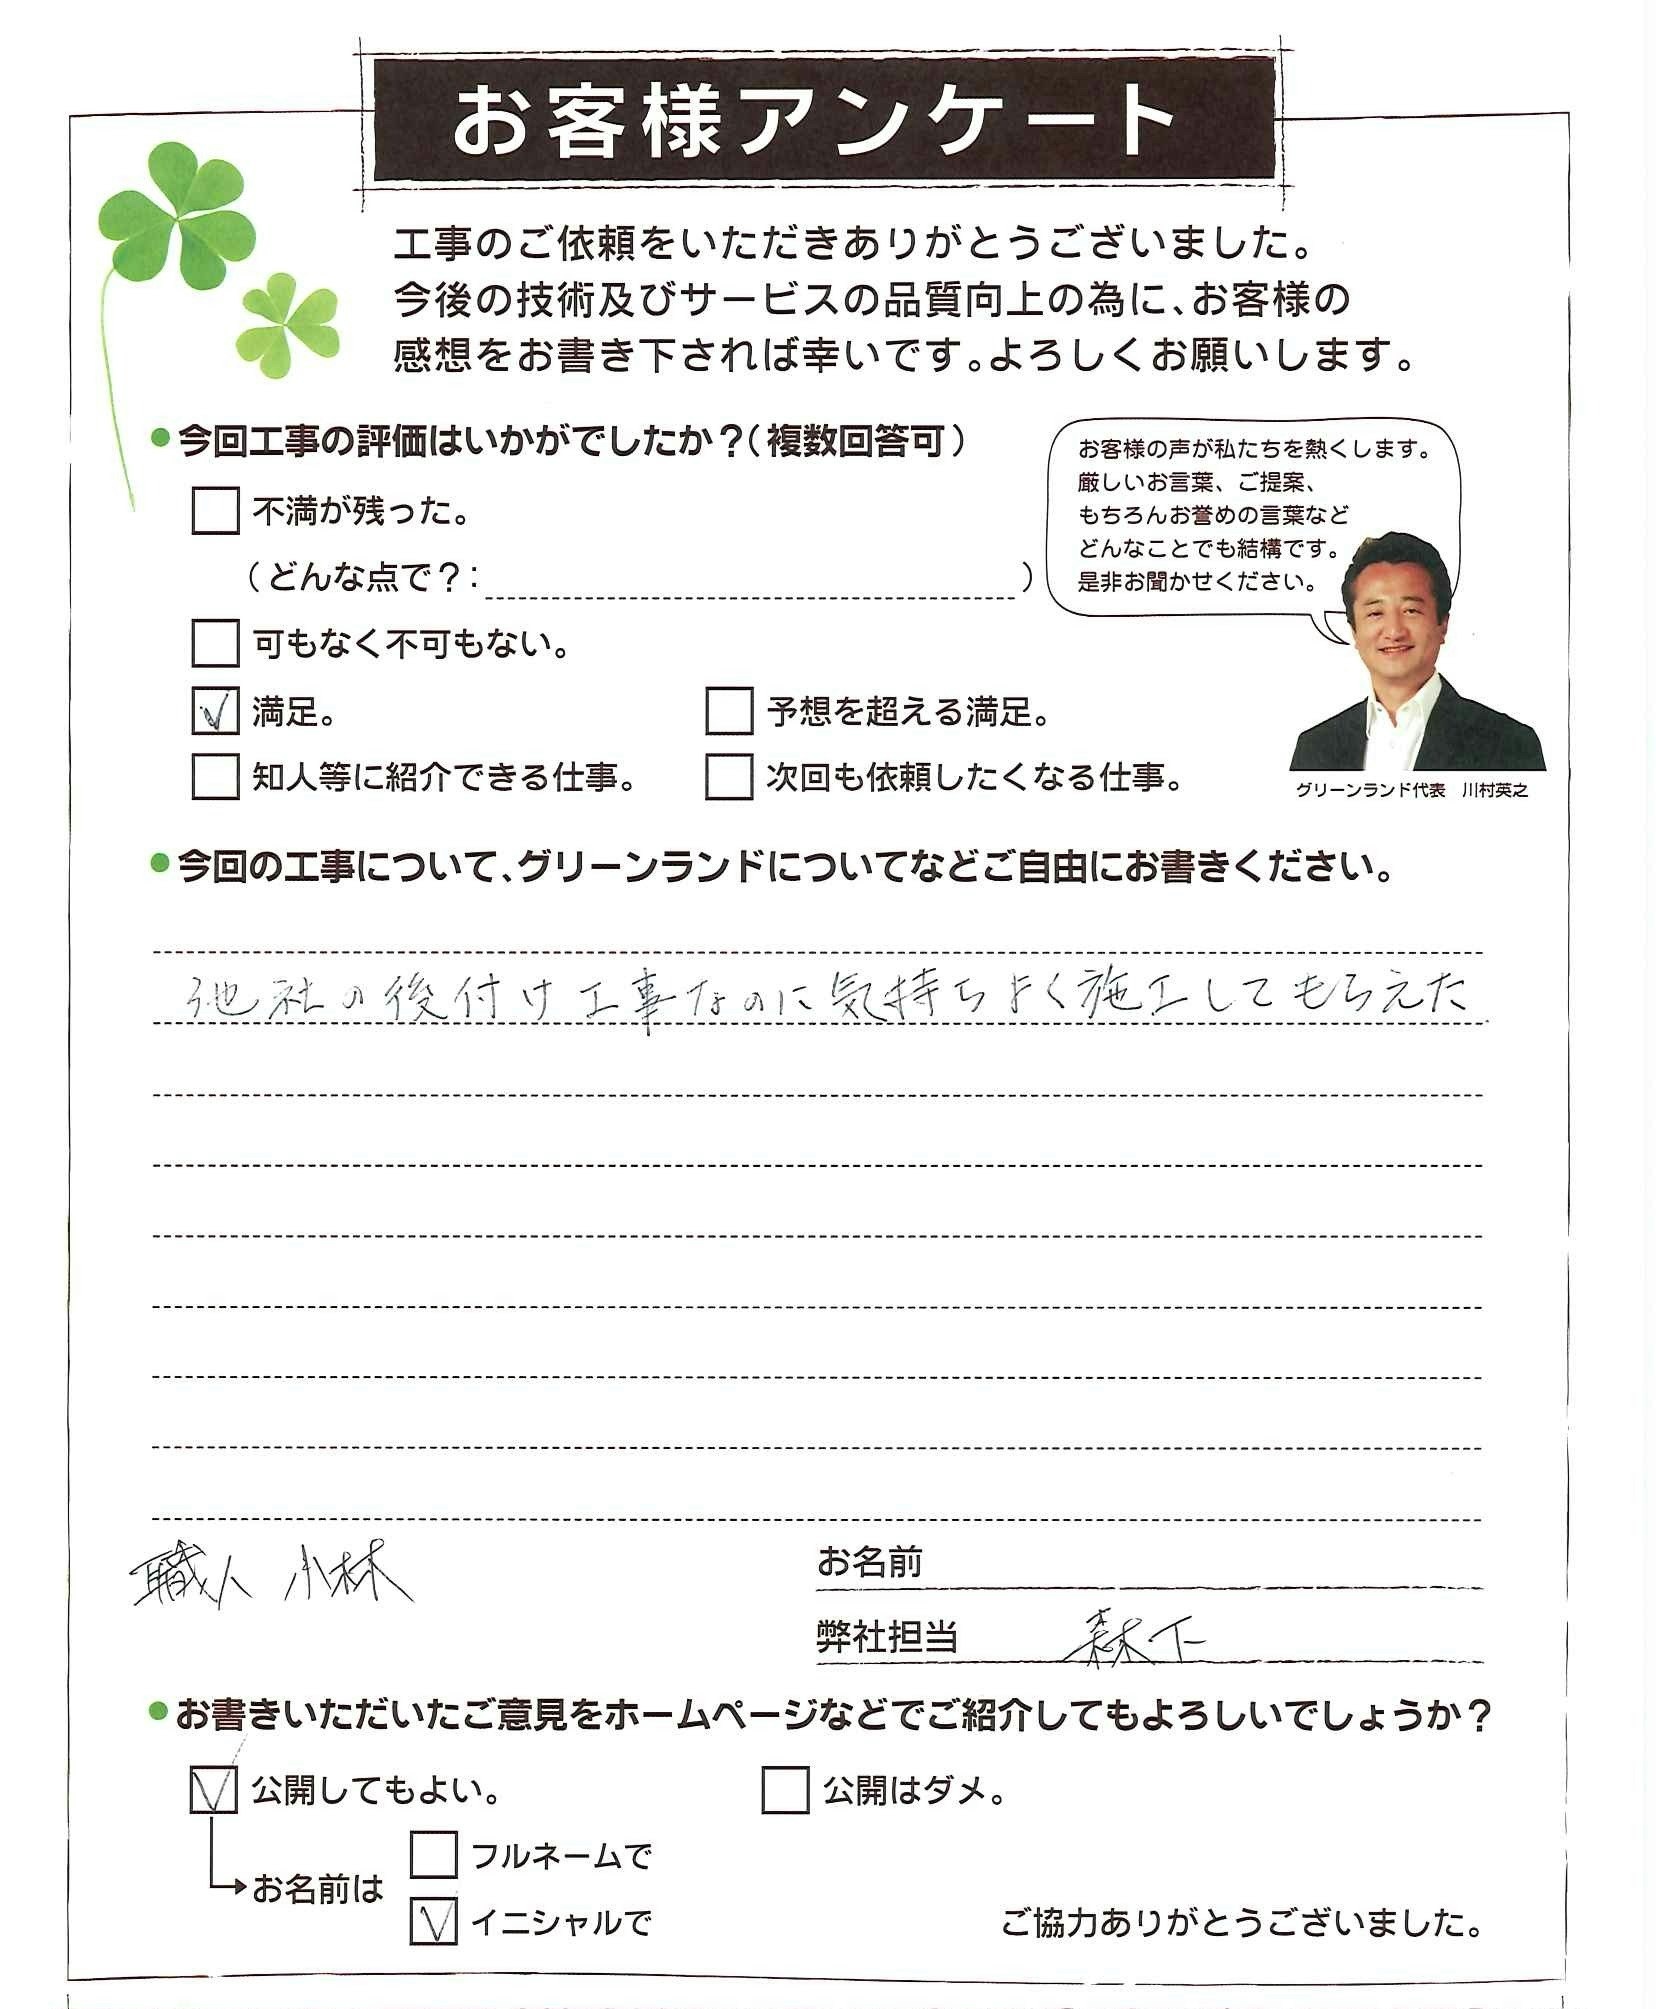 お客様アンケート
工事のご依頼をいただきありがとうございました。
今後の技術及びサービスの品質向上の為に、お客様の
感想をお書き下されば幸いです。よろしくお願いします。
●今回工事の評価はいかがでしたか？(複数回答可)
不満が残った。
(どんな点で？: )
可もなく不可もない。
満足。
予想を超える満足。
知人等に紹介できる仕事。
次回も依頼したくなる仕事。
お客様の声が私たちを熱くします。
厳しいお言葉、ご提案、
もちろんお誉めの言葉など
どんなことでも結構です。
是非お聞かせください。
グリーンランド代表　川村英之
●今回の工事について、グリーンランドについてなどご自由にお書きください。
他社の後付け工事なのに気持ちよく施工してもらえた
職人 小林
お名前
弊社担当 森下
●お書きいただいたご意見をホームページなどでご紹介してもよろしいでしょうか？
公開してもよい。
公開はダメ。
お名前は
フルネームで
イニシャルで
ご協力ありがとうございました。